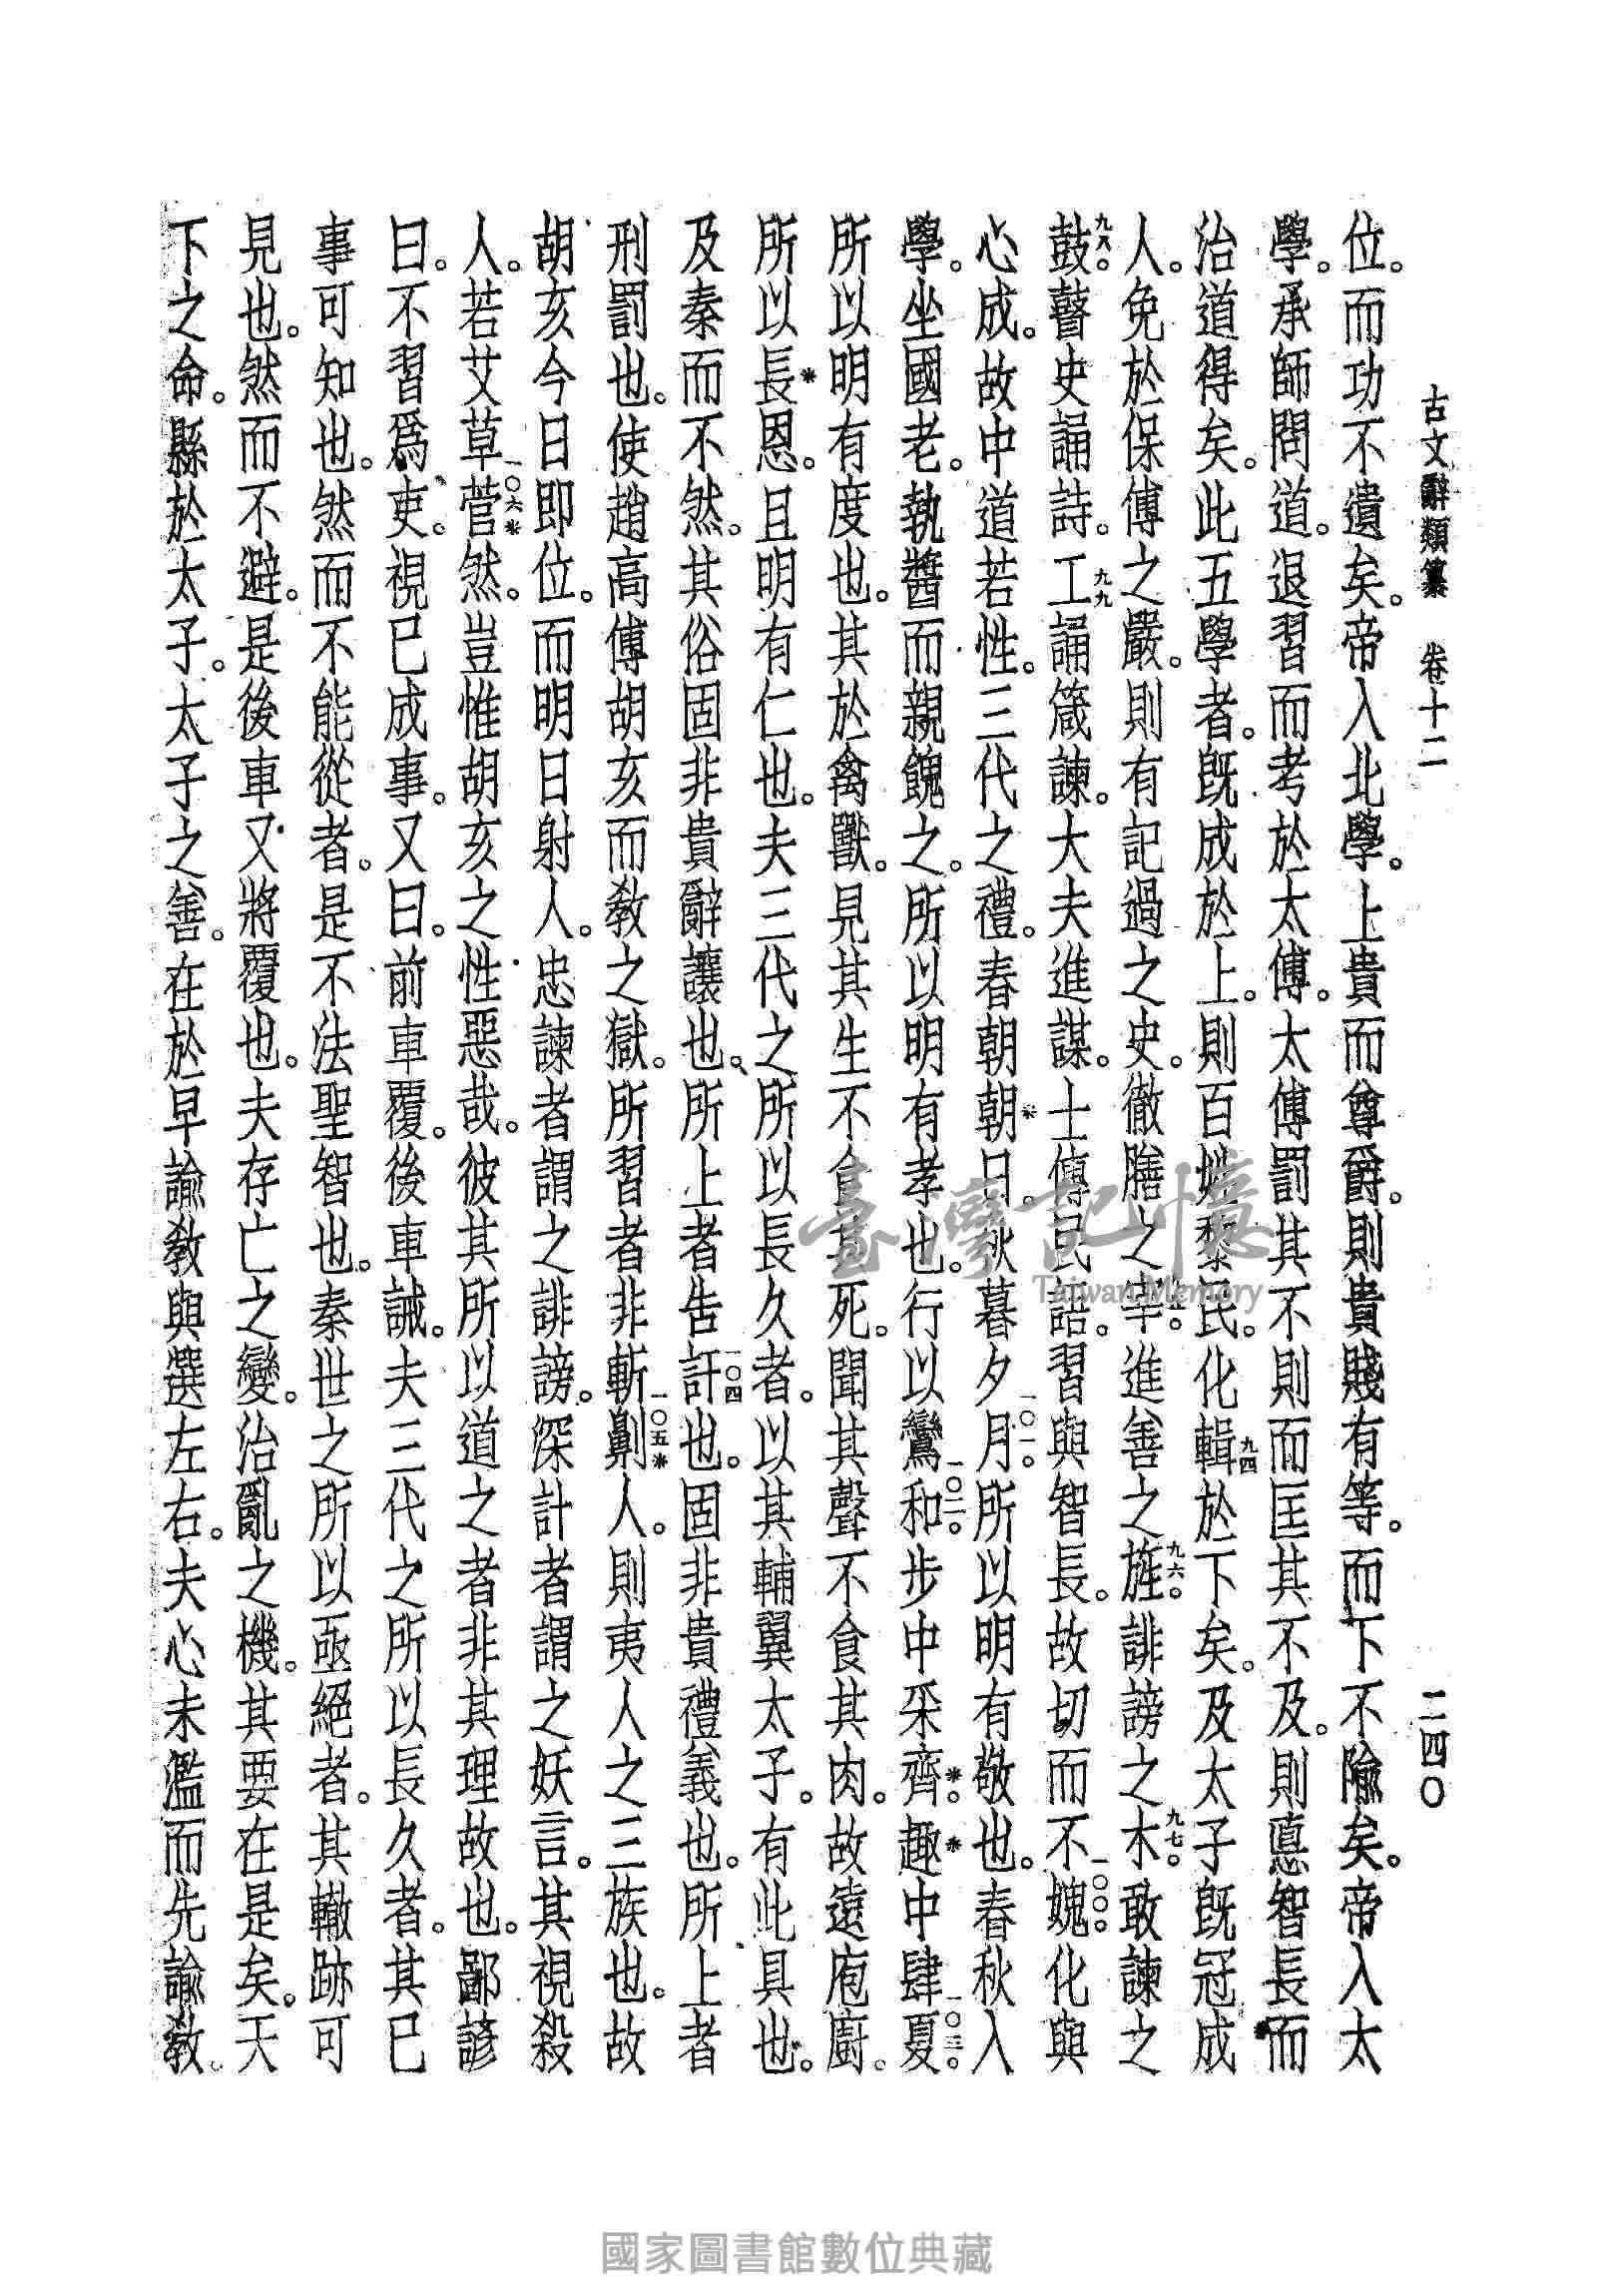 古文辭類纂　卷十二　二四〇
位。而功不遺矣。帝入北學。上貴而尊爵。則貴賤有等。而下不隃矣。帝入太
學。承師問道。退習而考於太傅。太傅罰其不則而匡其不及。則悳智長而
治道得矣。此五學者。既成於上。則百姓黎民。化輯九四於下矣。及太子既冠成
人。免於保傅之嚴。則有記過之史。徹膳之宰。進善之旌九六。誹謗之木九七。敢諫之
鼓九八。瞽史誦詩。工九九誦箴諫。大夫進謀。士傳民語。習與智長。故切而不媿一〇〇。化與
心成。故中道若性。三代之禮。春朝朝*日。秋暮夕月一〇一。所以明有敬也。春秋入
學。坐國老。執醬而親餽之。所以明有孝也。行以鸞和一〇二。步中采齊*。趣*中肆夏一〇三。
所以明有度也。其於禽獸。見其生不食其死。聞其聲不食其肉。故遠庖廚。
所以長*恩。且明有仁也。夫三代之所以長久者。以其輔翼太子。有此具也。
及秦而不然。其俗固非貴辭讓也、所上者告訐一〇四也。固非貴禮義也。所上者
刑罰也。使趙高傅胡亥而敎之獄。所習者非斬劓一〇五*人。則夷人之三族也。故
胡亥今日即位。而明日射人。忠諫者謂之誹謗。深計者謂之妖言。其視殺
人。若艾草菅一〇六*然。豈惟胡亥之性惡哉。彼其所以道之者非其理故也。鄙諺
曰。不習爲吏。視已成事。又曰。前車覆。後車誡。夫三代之所以長久者。其已
事可知也。然而不能從者。是不法聖智也。秦世之所以亟絕者。其轍跡可
見也。然而不避。是後車又將覆也。夫存亡之變。治亂之機。其要在是矣。天
下之命。縣於太子。太子之善。在於早諭敎與選左右。夫心未濫而先諭敎。
臺灣記憶
Taiwan Memory
國家圖書館數位典藏